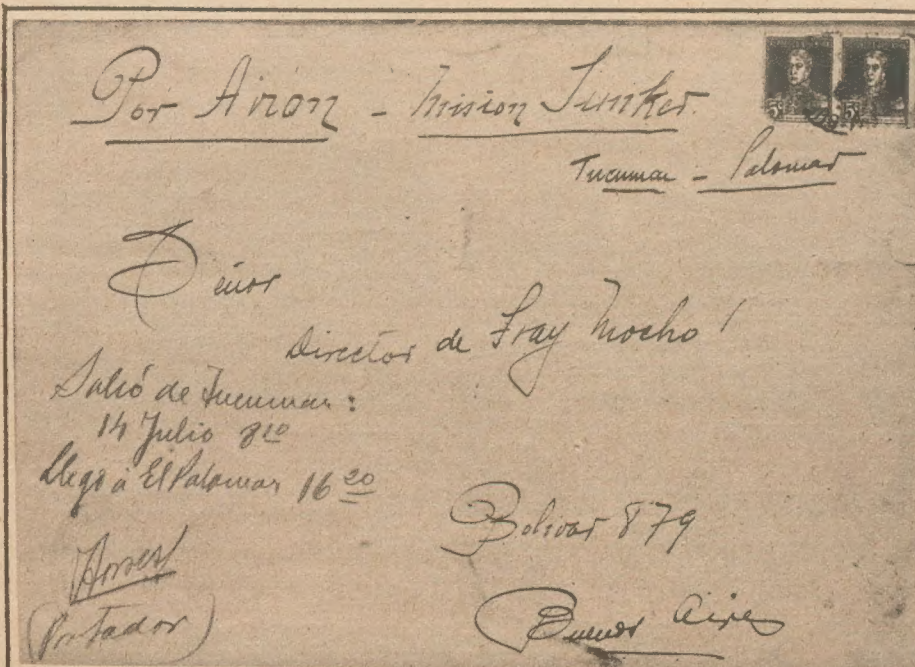 Por Avion - Mision Junker.
Tucuman - Palomar
5c 5c
Señor
Director de Fray Mocho
Salió de Tucuman:
14 Julio 8 10
Llegó á El Palomar 16 20
Bolivar 879
(Portador)
Buenos Aires